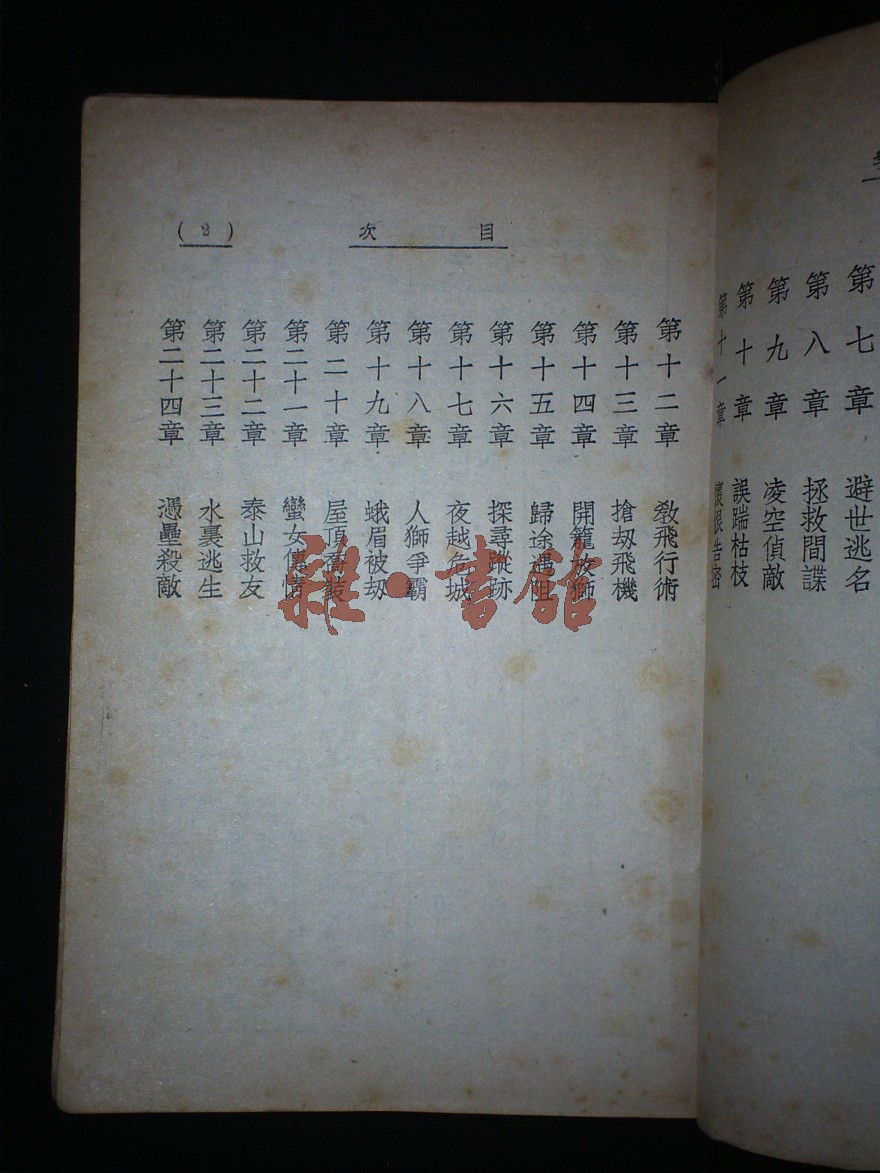 第七章 避世逃名
第八章 拯救間諜
第九章 凌空偵敵
第十章 誤踹枯枝
第十一章 懷恨告密
目次
(2)
第十二章 敎飛行術
第十三章 搶刼飛機
第十四章 開籠放獅
第十五章 歸途遇阻
第十六章 探尋蹤跡
第十七章 夜越危城
第十八章 人獅爭霸
第十九章 蛾眉被刼
第二十章 屋頂喬裝
第二十一章 蠻女傳情
第二十二章 泰山救友
第二十三章 水裏逃生
第二十四章 憑壘殺敵
雜·書館